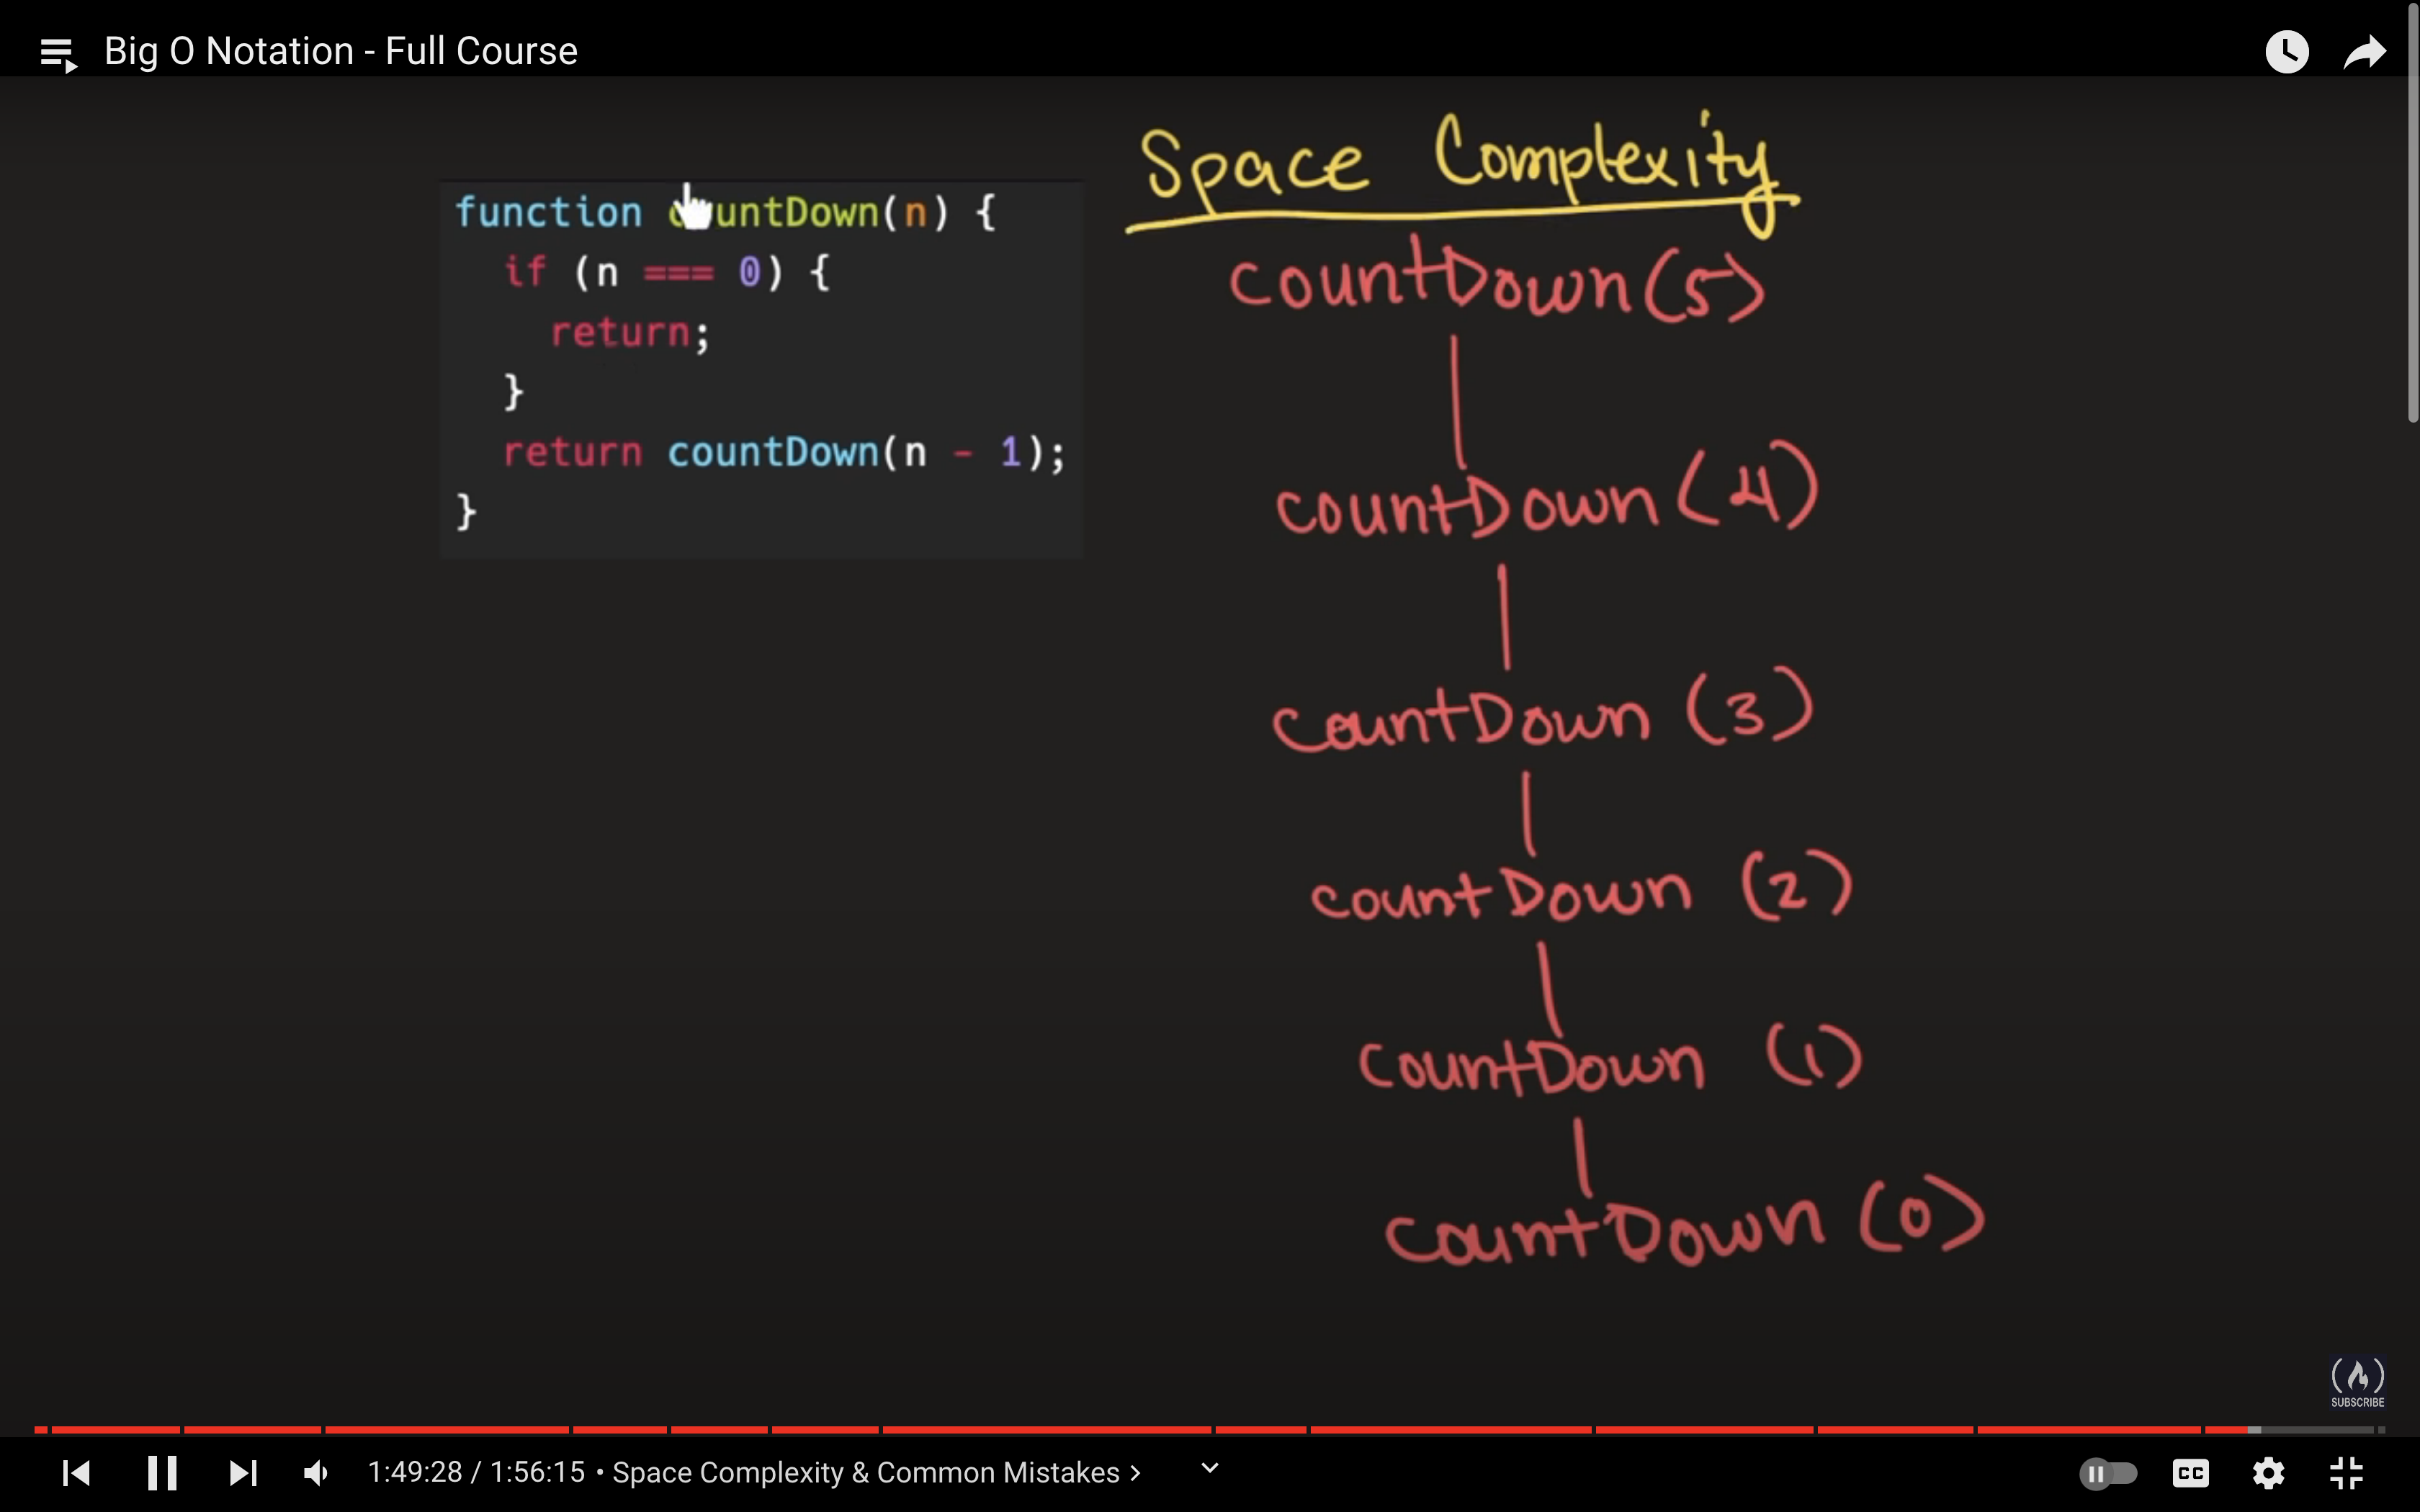 Big O Notation - Full Course
Space Complexity
function countDown(n) {
if (n === 0) {
return;
}
return countDown(n - 1);
}
countDown(5)
countDown(4)
countDown(3)
countDown(2)
countDown(1)
countDown(0)
SUBSCRIBE
1:49:28 / 1:56:15 • Space Complexity & Common Mistakes >
CC